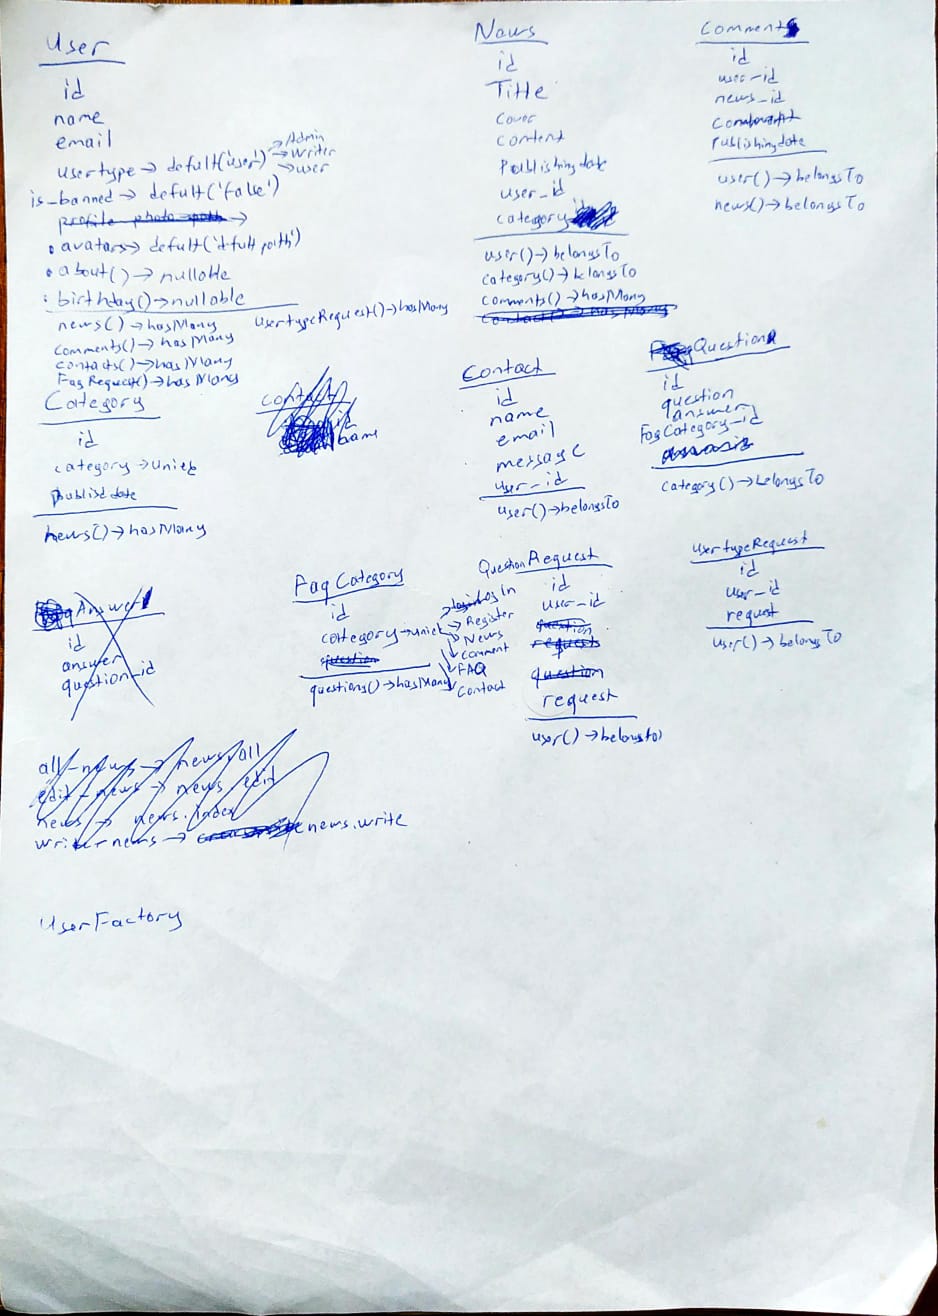 User
id
name
email
usertype → defult('user') → Admin
→ writer
→ user
is_banned → defult('false')
profile photo path →
• avatars → defult('dfult path')
• about() → nullable
• birthday() → nullable
news() → hasMany
comments() → hasMany
contacts() → hasMany
FaqRequest() → hasMany
usertypeRequest() → hasMany
News
id
Title
cover
content
Publishing date
user_id
category
user() → belongsTo
category() → belongsTo
comments() → hasMany
contact() → hasMany
Comment
id
user_id
news_id
Publishing date
user() → belongsTo
news() → belongsTo
Category
id
category → uniek
publisd date
news() → hasMany
contact
name
Contact
id
name
email
message
user_id
user() → belongsTo
Question
id
question
answer
FaqCategory_id
category() → belongsTo
Answer
id
answer
question_id
Faq Category
id
category → uniek
question
questions() → hasMany
→ Log In
→ Register
→ News
→ comment
→ FAQ
→ Contact
Question Request
id
user_id
question
request
question
request
user() → belongsto)
usertypeRequest
id
user_id
request
user() → belongsTo
all-news → news.all
edit-news → news edit
news → news.index
writer news → news.write
UserFactory